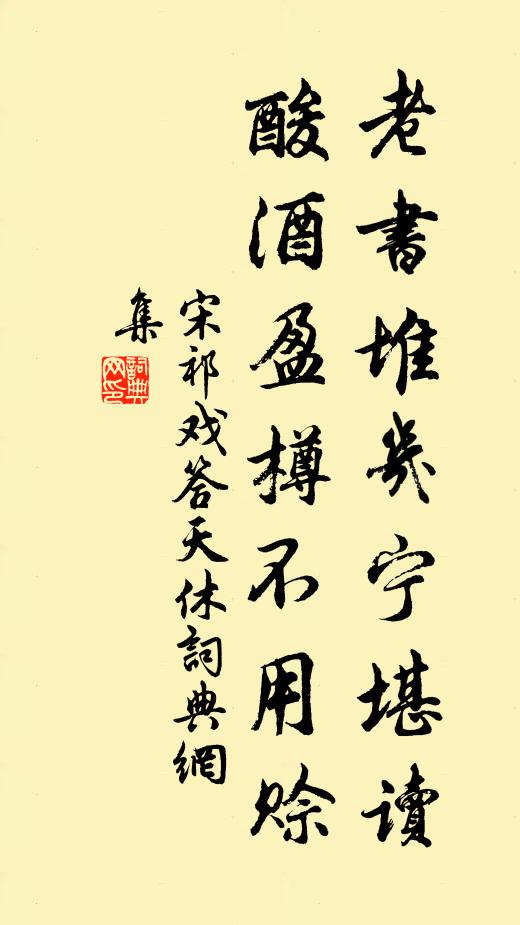 老書堆幾宁堪讀
酸酒盈樽不用赊
宋祁戏答天休詞典網
集
詞典網印